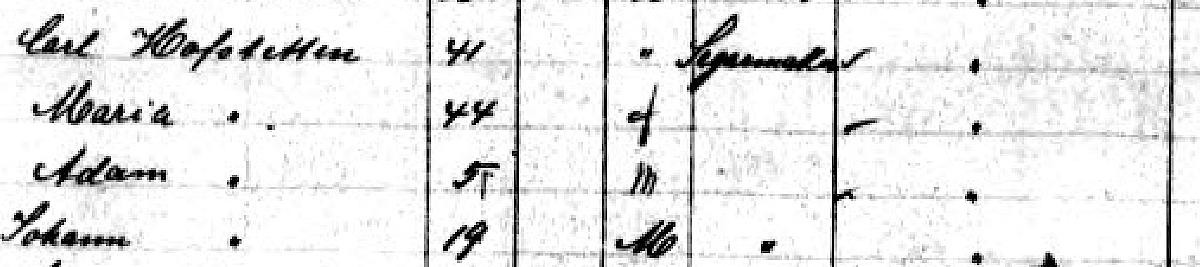 Carl Hofstetter 41 "
Maria " 44 f
Adam " 5 m
Johann " 19 M "